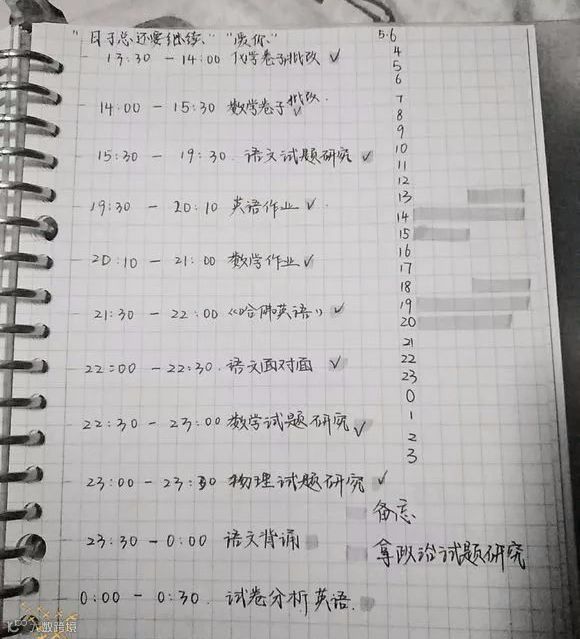 "日子总还要继续、""激你."
13:30 - 14:00 化学卷子批改 ✓
14:00 - 15:30 数学卷子批改. ✓
15:30 - 19:30. 语文试题研究 ✓
19:30 - 20:10 英语作业 ✓
20:10 - 21:00 数学作业 ✓
21:30 - 22:00 《哈佛英语》 ✓
22:00 - 22:30. 语文面对面 ✓
22:30 - 23:00 数学试题研究 ✓
23:00 - 23:30 物理试题研究 ✓
23:30 - 0:00 语文背诵
0:00 - 0:30. 试卷分析英语.
5.6
4
5
6
7
8
9
10
11
12
13
14
15
16
17
18
19
20
21
22
23
0
1
2
3
备忘:
拿政治试题研究
大数跨境